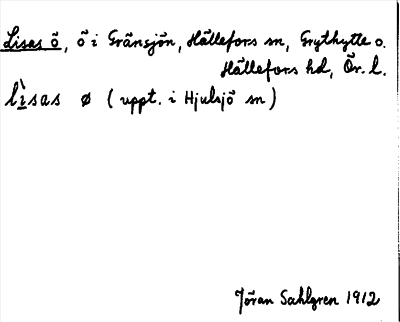 Lisas ö, ö i Gränsjön, Hällefors sn, Grythytte o.
Hällefors hd, Ör. l.
lìsas ø (uppt. i Hjulsjö sn)
Jöran Sahlgren 1912